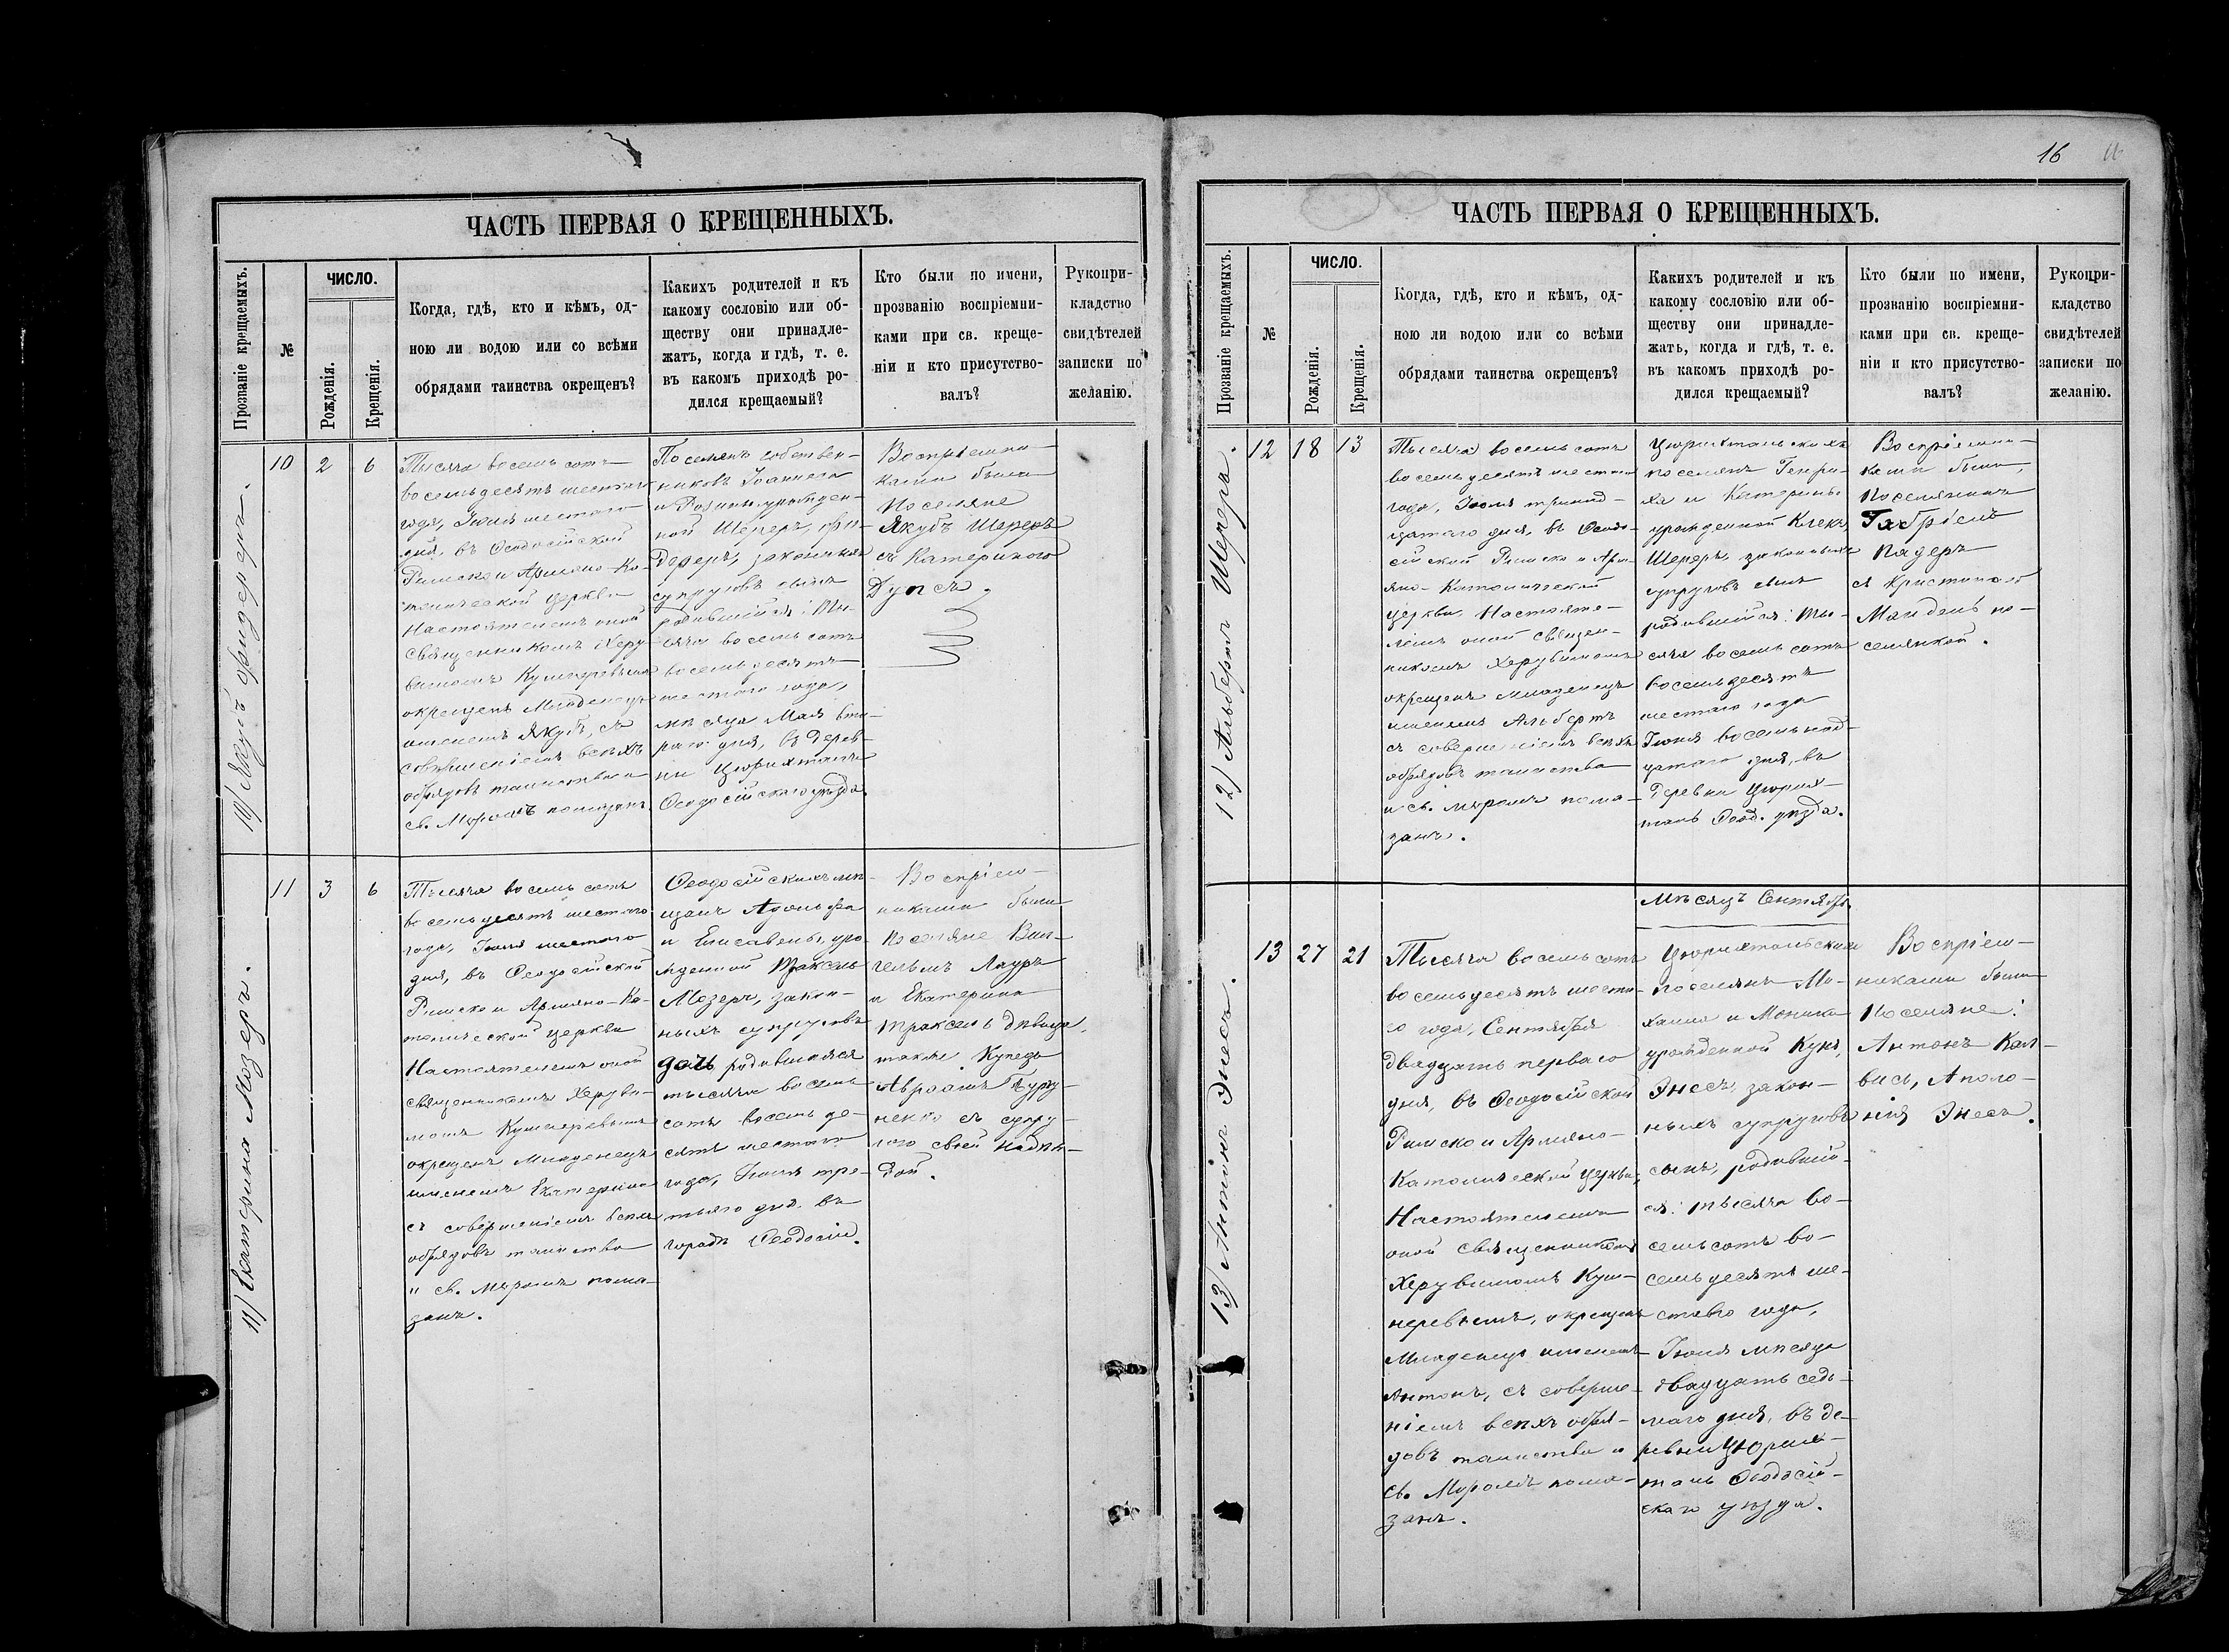 16
ЧАСТЬ ПЕРВАЯ О КРЕЩЕННЫХЪ.
Прозваніе крещаемыхъ.
№
ЧИСЛО.
Рожденія.
Крещенія.
Когда, гдѣ, кто и кѣмъ, од-
ною ли водою или со всѣми
обрядами таинства окрещенъ?
Каихъ родителей и къ
какому сословію или об-
ществу они принадле-
жатъ, когда и гдѣ, т. е.
въ какомъ приходѣ ро-
дился крещаемый?
Кто были по имени,
прозванію воспріемни-
ками при св. креще-
ніи и кто присутство-
валъ?
Рукопри-
кладство
свидѣтелей
записки по
желанію.
10) Якубъ Фидереръ.
10
2
6
Тысяча восемь сотъ
восемьдесятъ шестаго
года, Іюля шестаго
дня, въ Ѳеодосійской
Римско и Армяно-Ка-
толической церкви
Настоятелемъ оной
священникомъ Херу-
вимомъ Кушнеревымъ
окрещенъ Младенецъ
именемъ Якубъ, съ
совершеніемъ всѣхъ
обрядовъ таинства и
св. Мѵромъ помазанъ.
Поселянъ собствен-
никовъ Іоаннеса
и Розины урожден-
ной Шереръ, Фи-
дереръ, законныхъ
супруговъ сынъ
родившійся: Ты-
сяча восемь сотъ
восемьдесятъ
шестаго года,
мѣсяца Мая вто-
раго дня, въ дерев-
ни Цюрихталь
Ѳеодосійскаго уѣзда.
Воспріемни-
ками были
Поселяне
Якубъ Шереръ
съ Катериною
Дупсъ.
11) Екатерина Мозеръ.
11
3
6
Тысяча восемь сотъ
восемьдесятъ шестаго
года, Іюля шестаго
дня, въ Ѳеодосійской
Римско и Армяно-Ка-
толической церкви
Настоятелемъ оной
священникомъ Херуви-
момъ Кушнеревымъ
окрещенъ Младенецъ
именемъ Екатерина
съ совершеніемъ всѣхъ
обрядовъ таинства
" св. Мѵромъ пома-
занъ.
Ѳеодосійскихъ мѣ-
щанъ Адольфа
и Елисаветы, уро-
жденной Траксель
Мозеръ, закон-
ныхъ супруговъ
дочь родившаяся
тысяча восемь
сотъ восемь де-
сятъ шестаго
года, Іюля тре-
тьяго дня въ
городѣ Ѳеодосіи.
Воспріем-
никами были
поселяне Вил-
гельмъ Лауръ
и Екатерина
Траксель дѣвица,
также Купецъ
Авраамъ
съ супру-
гою своей
12) Альбертъ Шерера.
12
18
13
Тысяча восемь сотъ
восемьдесятъ шестаго
года, Іюля тринад-
цатаго дня, въ Ѳеодо-
сійской Римско и Арм-
яно-Католической
церкви, Настояте-
лемъ оной священ-
никомъ Херувимомъ
окрещенъ младенецъ
именемъ Альбертъ
съ совершеніемъ всѣхъ
обрядовъ таинства
и св. мѵромъ пома-
занъ.
Цюрихтальскихъ
поселянъ Генри-
ха и Катерины
урожденной Клекъ,
Шереръ, законныхъ
супруговъ сынъ
родившійся: Ты-
сяча восемь сотъ
восемьдесятъ
шестаго года
Іюня восемьнад-
цатаго дня, въ
деревни Цюрих-
таль Ѳеод. уѣзда.
Воспріемни-
ками были,
поселянинъ
Габріель
Надеръ
съ Кристиной
Майдель по-
селянкой.
13) Антонъ Энесъ.
Мѣсяцъ Сентябрь.
13
27
21
Тысяча восемь сотъ
восемьдесятъ шеста-
го года, Сентября
двадцать перваго
дня, въ Ѳеодосійской
Римско и Армяно-
Католической церкви,
Настоятелемъ
оной священникомъ
Херувимомъ Куш-
неревымъ, окрещенъ
Младенецъ именемъ
Антонъ, съ соверше-
ніемъ всѣхъ обря-
довъ таинства и
св. Мѵромъ пома-
занъ.
Цюрихтальскихъ
поселянъ Ми-
хаила и Моника
урожденной Кунъ,
Энесъ, закон-
ныхъ супруговъ
сынъ, родившій-
ся: тысяча во-
семьсотъ во-
семьдесятъ ше-
стаго года,
Іюля мѣсяца
двадцать седь-
маго дня, въ де-
ревни Цюрих-
таль Ѳеодосій-
скаго уѣзда.
Воспріем-
никами были
Поселяне:
Антонъ Кал-
висъ, Аполо-
нія Энесъ.